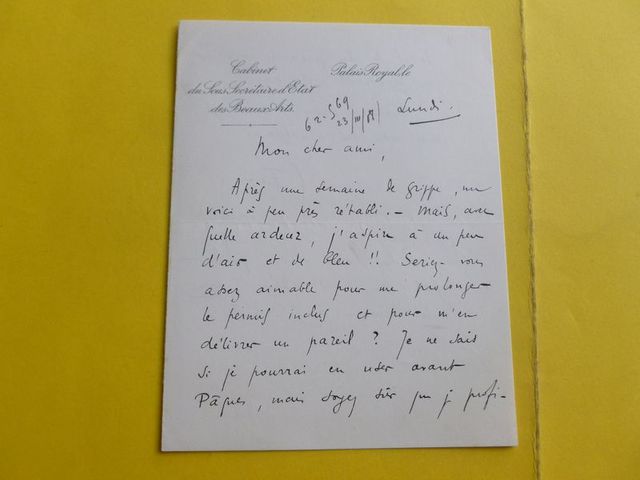 Cabinet
du Sous Secrétaire d'Etat
des Beaux Arts.
Palais Royal, le
Lundi.
Mon cher ami,
Après une semaine de grippe, me
voici à peu près rétabli. — Mais, avec
quelle ardeur, j'aspire à un peu
d'air et de bleu !! Seriez-vous
assez aimable pour me prolonger
le permis inclus et pour m'en
délivrer un pareil ? Je ne sais
si je pourrai en user avant
Pâques, mais soyez sûr que je profi-